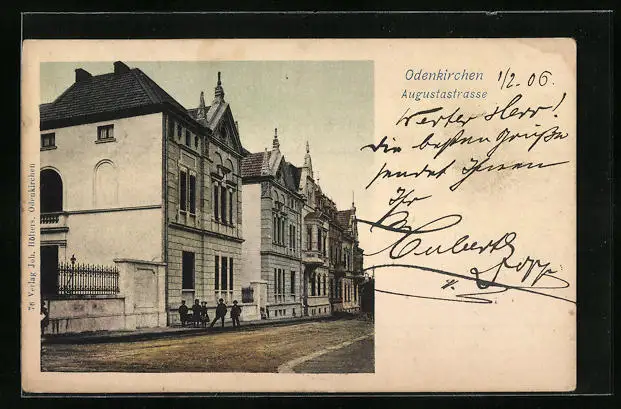 Odenkirchen
Augustastrasse
1/2. 06.
Werter Herr!
die besten Grüße
sendet Ihnen
Ihr
Hubert
76 Verlag Joh. Hölters, Odenkirchen